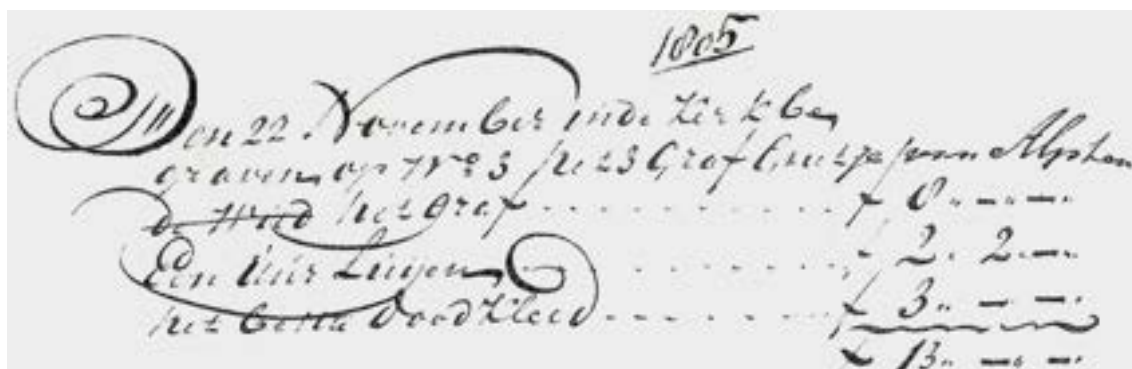 1805
Den 22 November inde Kerk be
graven op No 3 het 3 Graf van Alphen
de Wed het Graf . . . . . . f 8.. —..—..
Een Uur Luijen . . . . . . f 2.. 2..—..
het beste Doodkleed . . . . . . f 3.. — —
f 13.. —.. —..